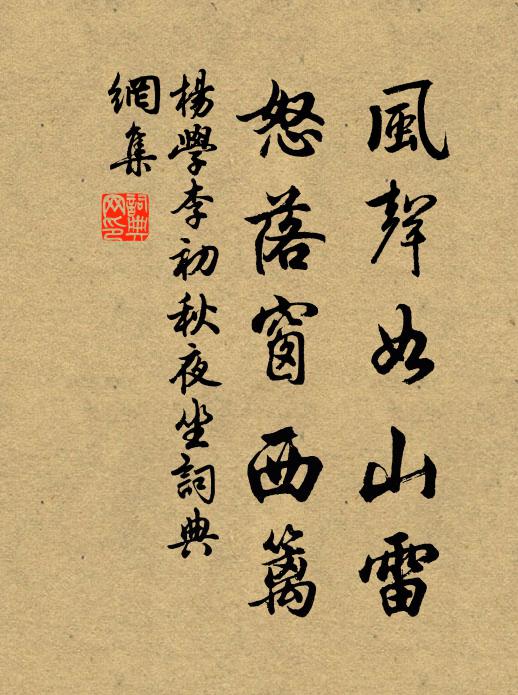 風聲如山雷
怒落窗西篱
楊學李初秋夜坐詞典
網集
詞典网印